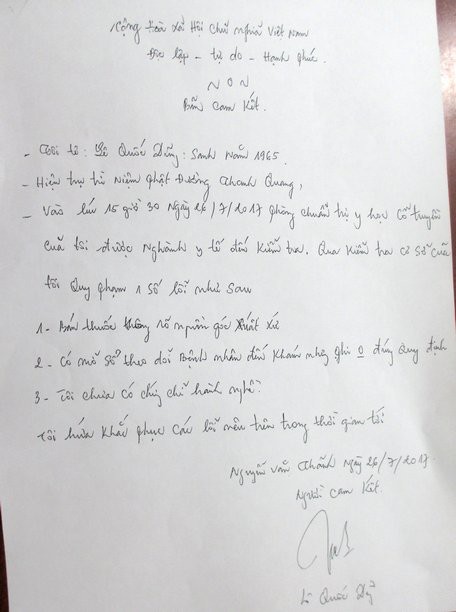 Cộng Hòa Xã Hội Chũ nghĩa Việt Nam
Độc lập - tự do - Hạnh phúc.
~ 0 ~
Bãn Cam Kết.
- Tôi tê: Lê Quốc Dũng: Sanh Năm 1965.
- Hiện trụ trì Niệm Phật Đường Thanh Quang,
- Vào lúc 15 giờ 30 Ngày 26/7/2017 phòng chuẩn trị y học cổ truyền
cuã tôi được Nghành y tế đến Kiễm tra. Qua Kiễm tra cơ sở cuã
tôi Quy phạm 1 số lỗi như sau
1 - Bán thuốc không rõ nguồn gốc xuất xứ
2 - Có mở sổ theo dõi Bệnh nhân đến khám nhưng ghi 0 đúng Quy định
3 - Tôi chưa có chứng chỉ hành nghề.
Tôi hứa khắc phục các lỗi nêu trên trong thời gian tới
Nguyễn văn Thãnh Ngày 26/7/2017
Người Cam Kết.
Lê Quốc Dũng